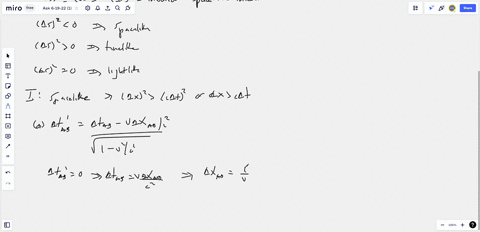 miro
Share
(ΔS)² < 0 ⇒ Spacelike
(ΔS)² > 0 ⇒ timelike
(ΔS)² = 0 ⇒ lightlike
I: Spacelike ⇒ (Δx)² > (cΔt)² or Δx > cΔt
(a) Δt'_AB = Δt_AB - vΔx_AB/c²
√1 - v²/c²
Δt'_AB = 0 ⇒ Δt_AB = vΔx_AB/c² ⇒ Δx_AB = c/v